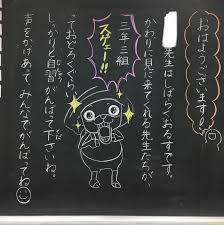 おはようございます！
先生はしばらくおるすです。
かわりに見に来てくれる先生たちが、
三年三組
スゲェー!!
っておどろくぐらい、
しっかりと自習がんばって下さいね。
声をかけあって、みんなでがんばってね